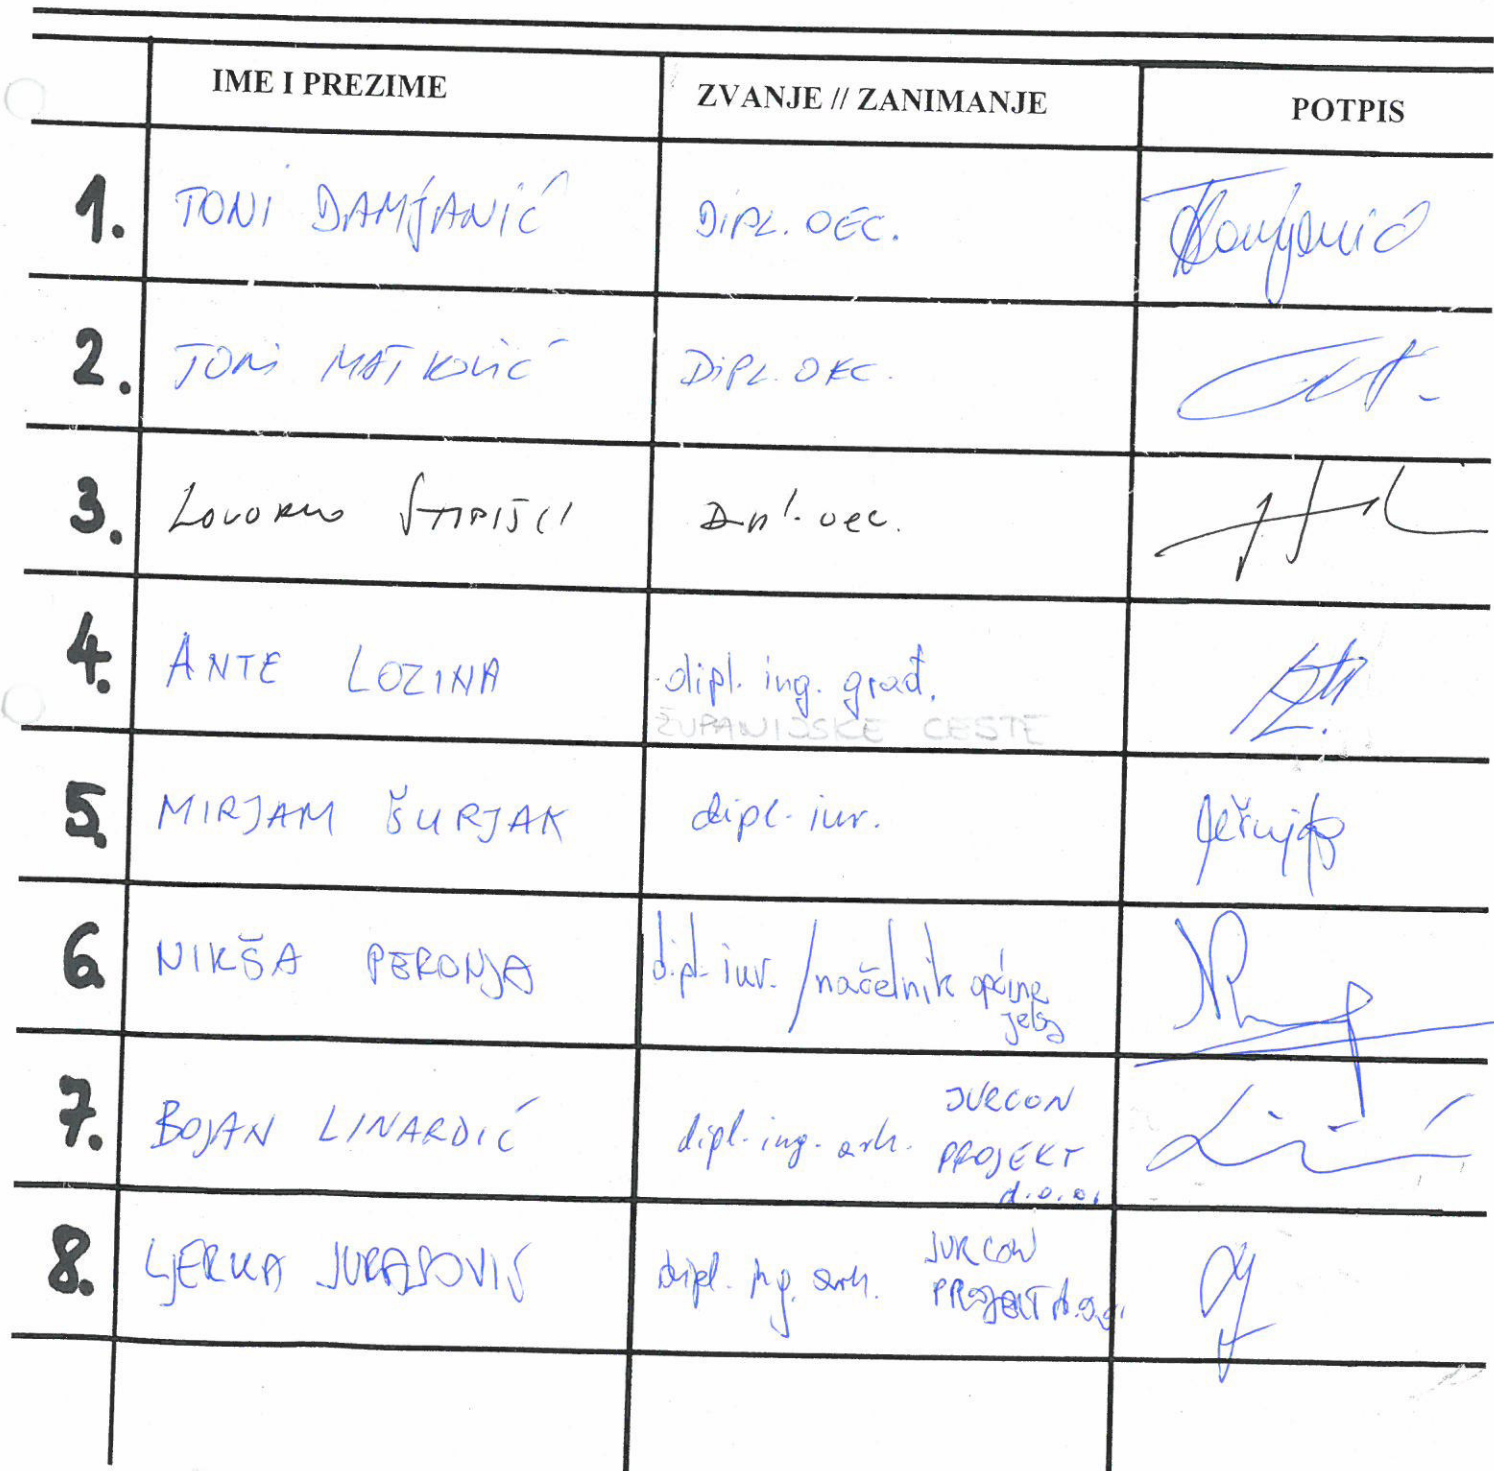 IME I PREZIME ZVANJE // ZANIMANJE POTPIS
1. TONI DAMJANIĆ DIPL. OEC.
2. TONI MATKOVIĆ DIPL. OEC.
3. dipl. oec.
4. ANTE LOZINA dipl. ing. građ.
ŽUPANIJSKE CESTE
5. MIRJAM ŠURJAK dipl. iur.
6. NIKŠA PERONJA dipl. iur. / načelnik općine
Jelsa
JURCON
7. BOJAN LINARDIĆ dipl. ing. arh. PROJEKT
d.o.o.
JURCON
8. LJERKA dipl. ing. arh. PROJEKT d.o.o.